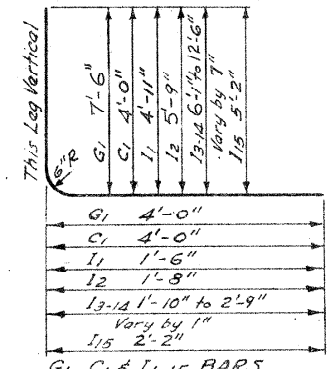 This Leg Vertical
6"R
G1 7'-6"
C1 4'-0"
I1 4'-11"
I2 5'-9"
I3-14 6'-1" to 12'-6"
Vary by 7"
I15 5'-2"
G1 4'-0"
C1 4'-0"
I1 1'-6"
I2 1'-8"
I3-14 1'-10" to 2'-9"
Vary by 1"
I15 2'-2"
G1, C1 & I1-15 BARS